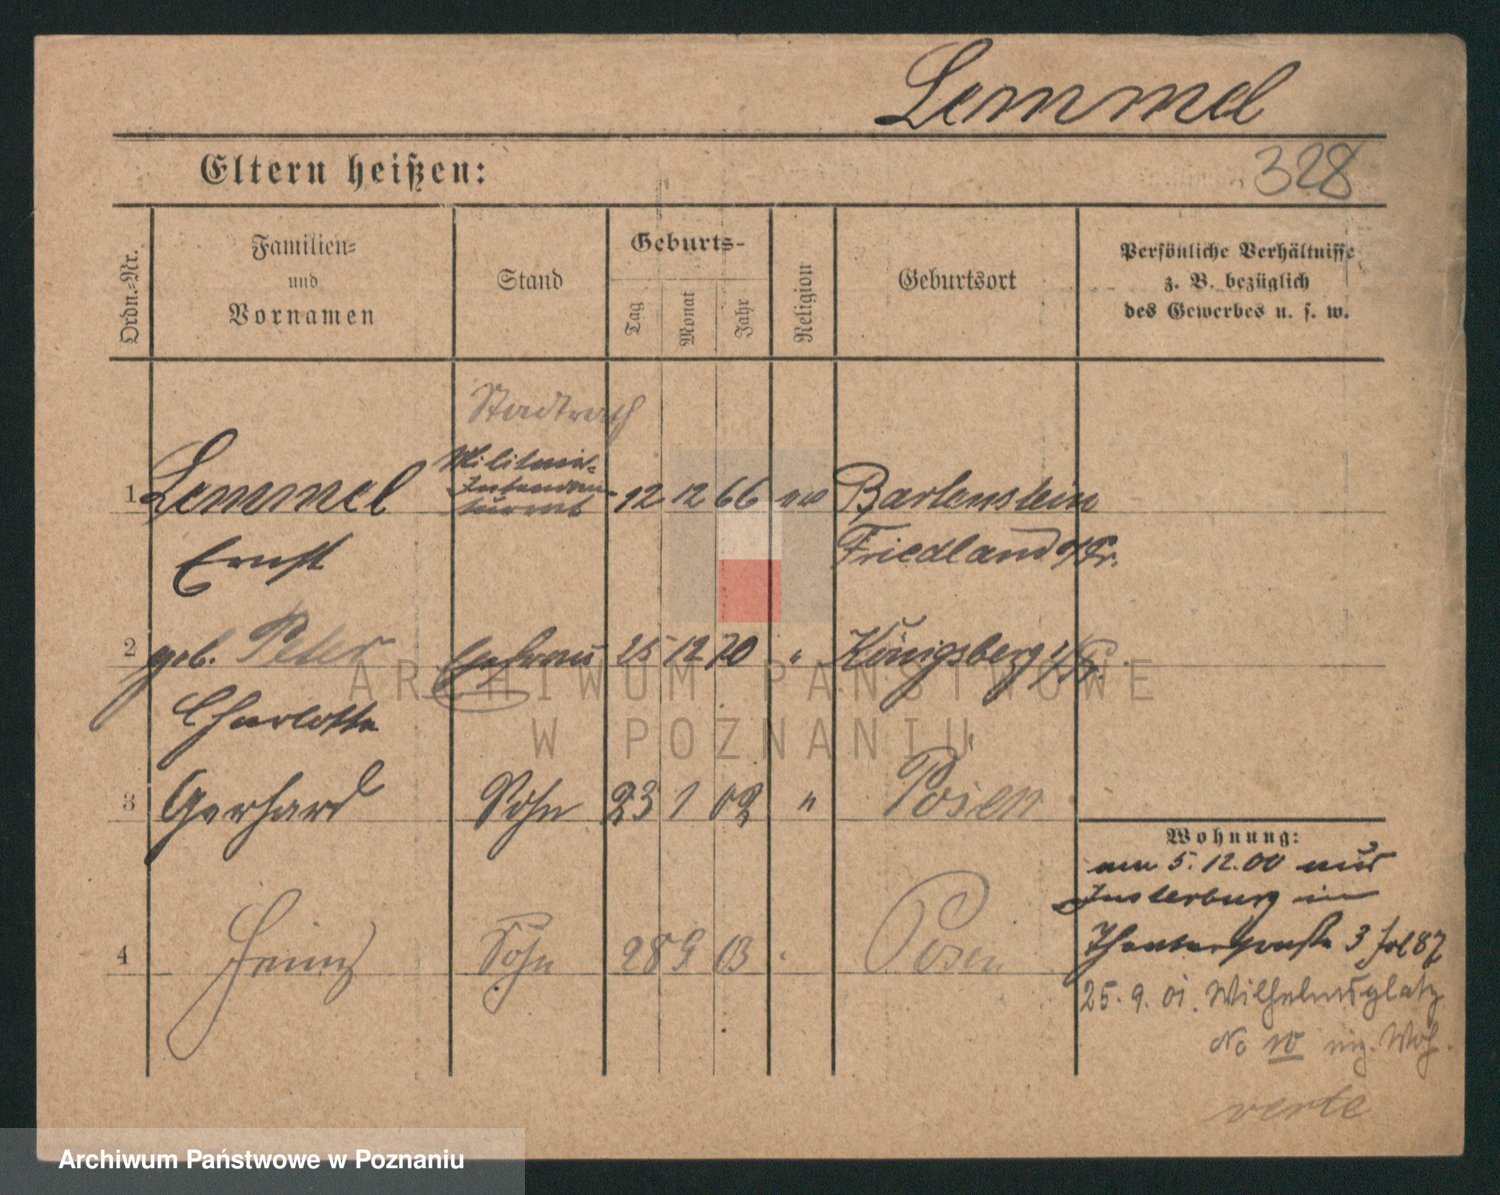 Lemmel
Eltern heißen:
328
Ordn.-Nr.
Familien-
und
Vornamen
Stand
Geburts-
Tag
Monat
Jahr
Religion
Geburtsort
Persönliche Verhältnisse
z. B. bezüglich
des Gewerbes u. s. w.
Stadtrath
Militair-
Intendan-
turrat
1 Lemmel 12 12 66 ev Bartenstein
Ernst Friedland O/Pr.
2 geb. Peter Ehefrau 25 12 70 " Königsberg i/Pr.
Charlotte
3 Gerhard Sohn 23 1 02 " Posen
Wohnung:
am 5.12.00 aus
Insterburg in
Theaterstraße 3
25.9.01. Wilhelmsplatz
No 10
4 Heinz Sohn 28 9 03 " Posen
verte
ARCHIWUM PAŃSTWOWE
W POZNANIU
Archiwum Państwowe w Poznaniu